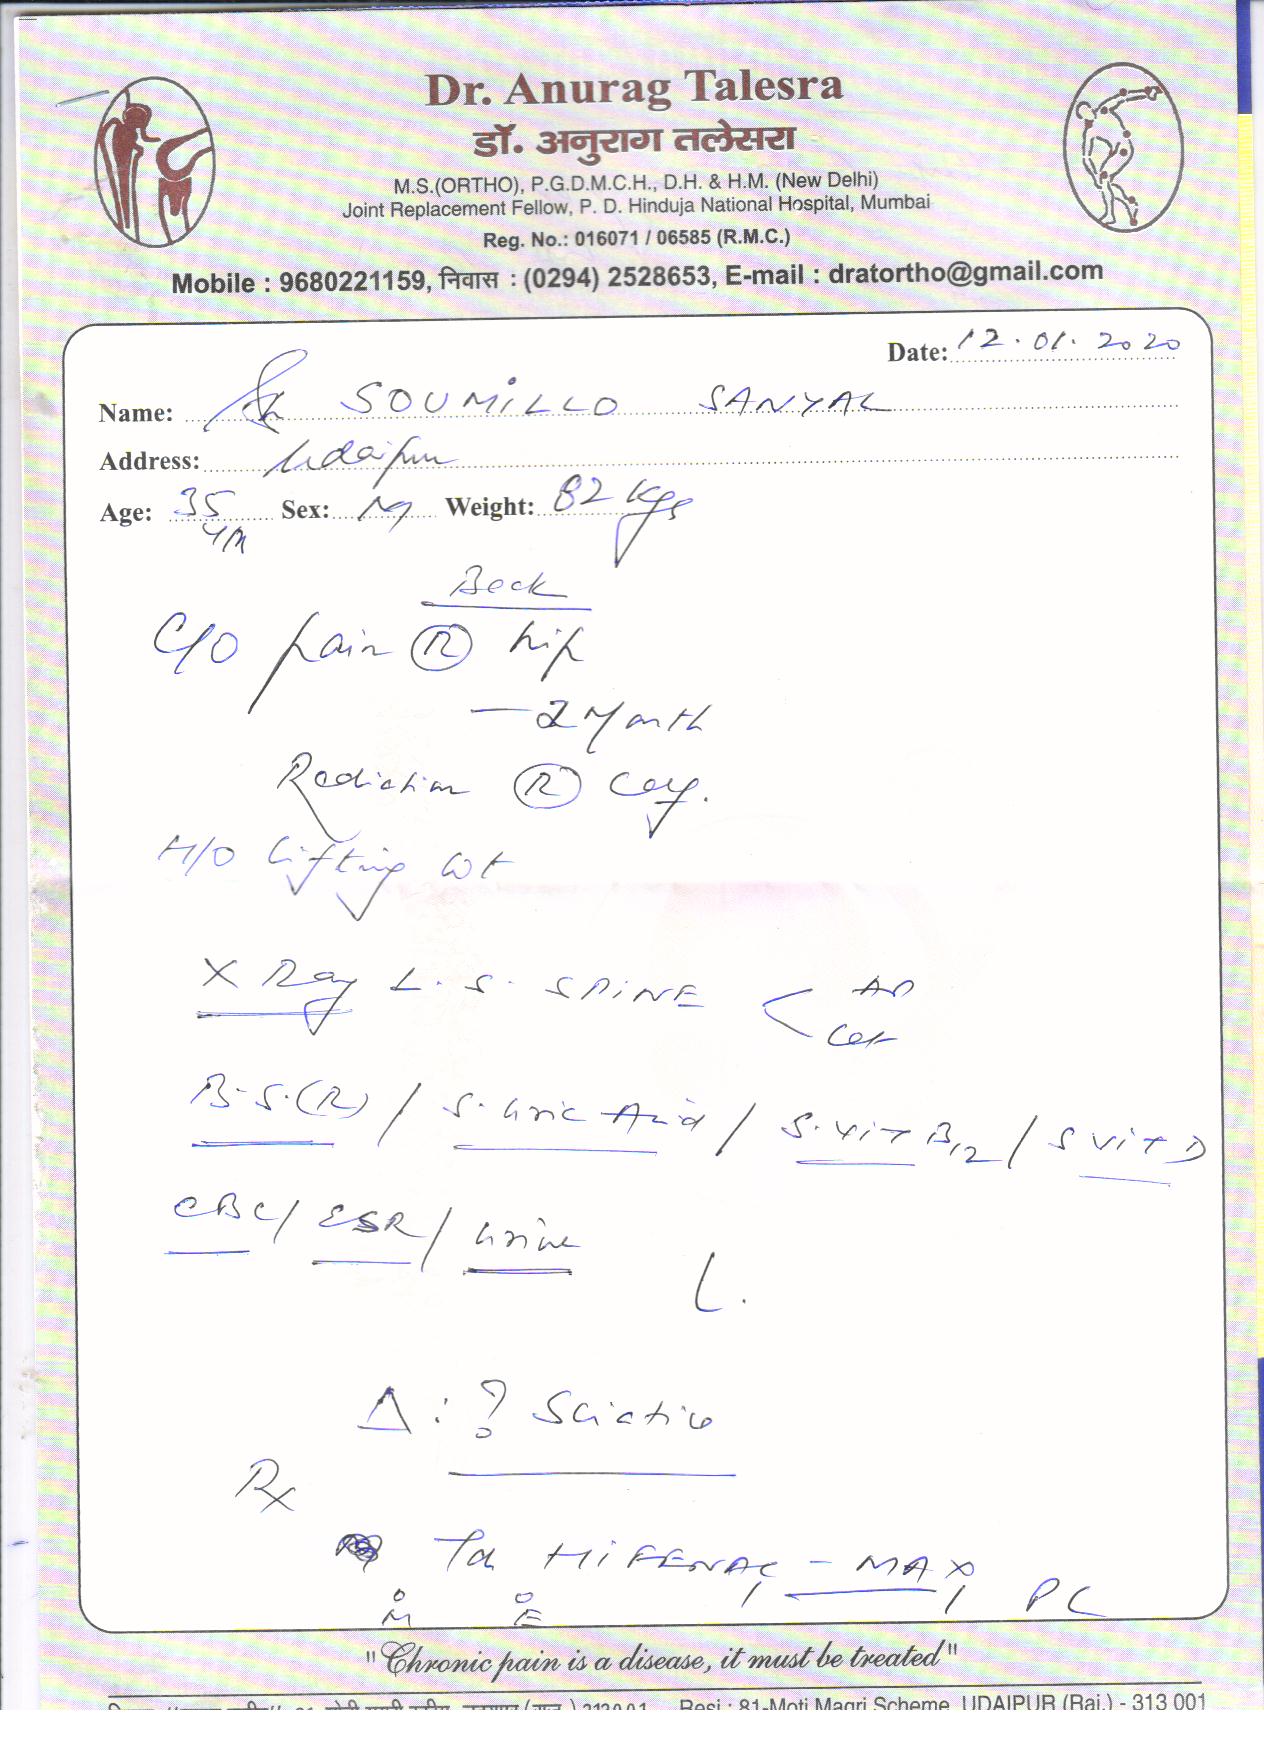 Dr. Anurag Talesra
डॉ. अनुराग तलेसरा
M.S.(ORTHO), P.G.D.M.C.H., D.H. & H.M. (New Delhi)
Joint Replacement Fellow, P. D. Hinduja National Hospital, Mumbai
Reg. No.: 016071 / 06585 (R.M.C.)
Mobile : 9680221159, निवास : (0294) 2528653, E-mail : dratortho@gmail.com
Date: 12.01.2020
Name: SOUMILLO SANYAL
Address: Udaipur
Age: 35 Sex: M Weight: 82 Kgs
Back
C/O pain (R) hip
- 2 Month
Radiation (R)
H/O Lifting wt
X Ray L.S. SPINE < AP
B.S.(R) / S. Uric Acid / S. VIT B12 / S VIT D
CBC / ESR / Urine
Δ : ? Sciatica
Rx
HIFENAC - MAX PC
M E
"Chronic pain is a disease, it must be treated"
Resi : 81-Moti Magri Scheme, UDAIPUR (Raj.) - 313 001